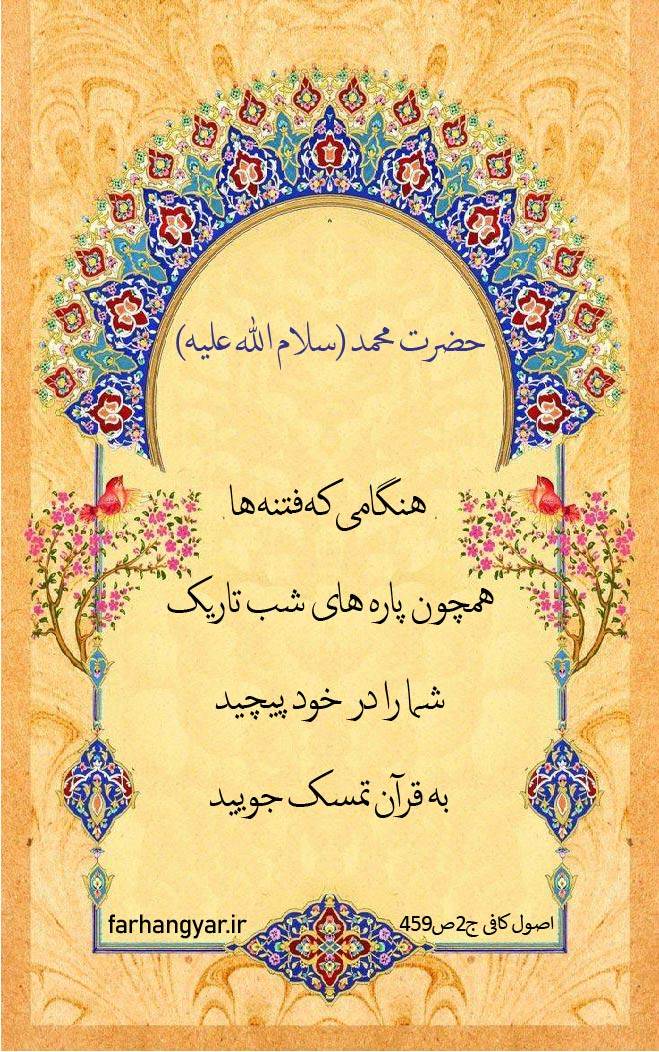 حضرت محمد (سلام الله علیه)
هنگامی که فتنه ها
همچون پاره های شب تاریک
شما را در خود پیچید
به قرآن تمسک جویید
اصول کافی ج2ص459
farhangyar.ir